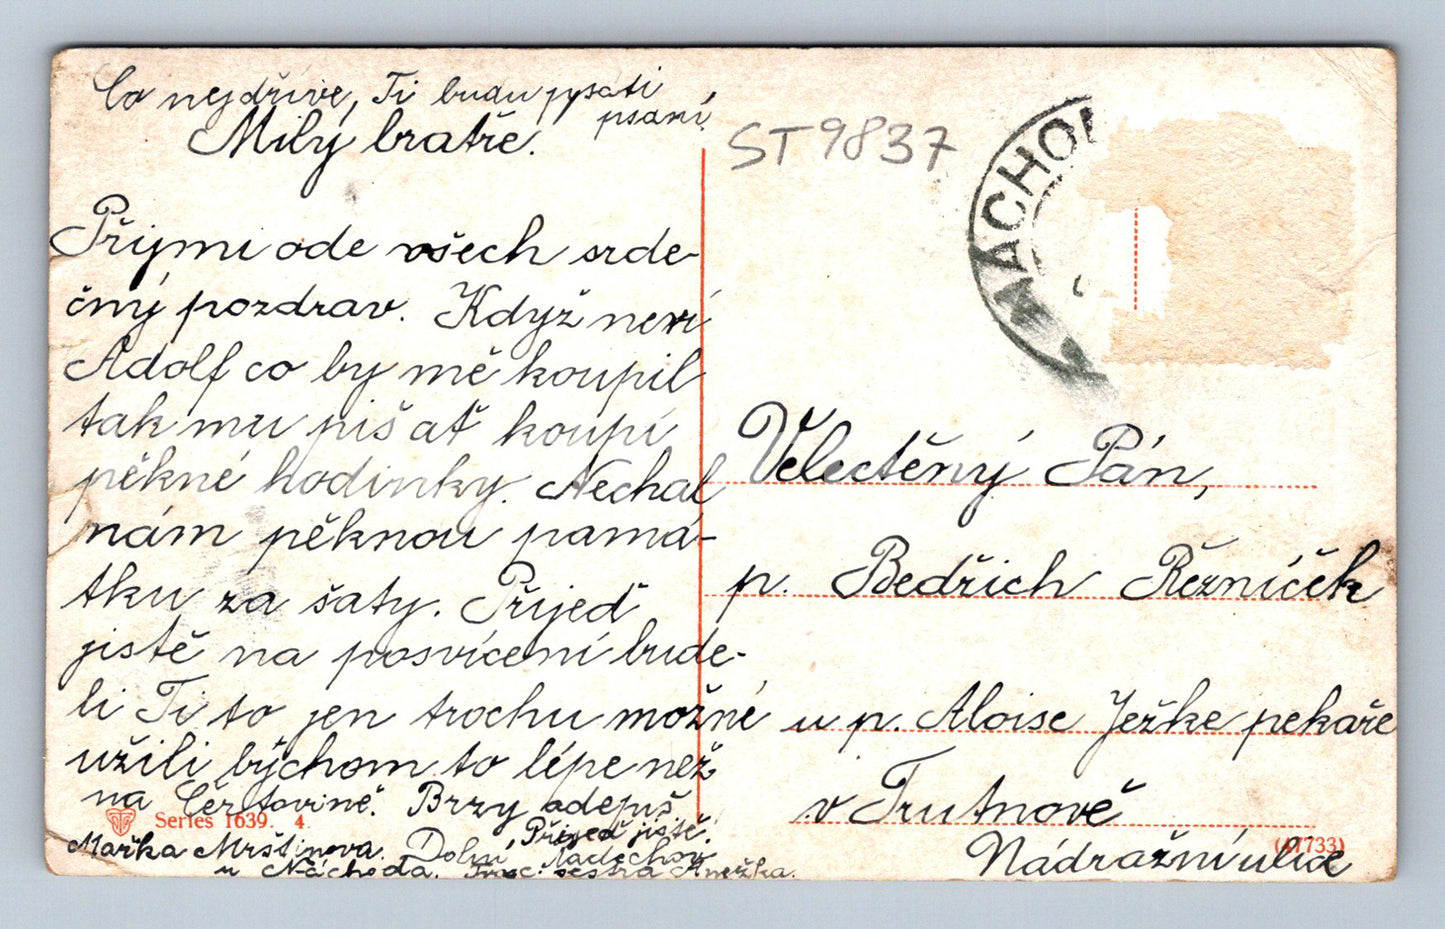 Co nejdříve, Ti budu pysati
psaní
Milý bratře.
Přijmi ode všech srde-
čný pozdrav. Když neví
Adolf co by mě koupil
tak mu piš ať koupí
pěkné hodinky. Nechal
nám pěknou pamá-
tku za šaty. Přijeď
jistě na posvícení bude-
li Ti to jen trochu možné
užili bychom to lépe než
na Čertovině. Brzy odepiš
Přijeď jistě.
Mařka Mrštinova. Dolní Radechov
u Náchoda. sestra Anežka.
Series 1639. 4.
ST9837
NÁCHOD
Velectěný Pán,
p. Bedřich Řezníček
u p. Aloise Ježke pekaře
v Trutnově
Nádražní ulice
(47733)